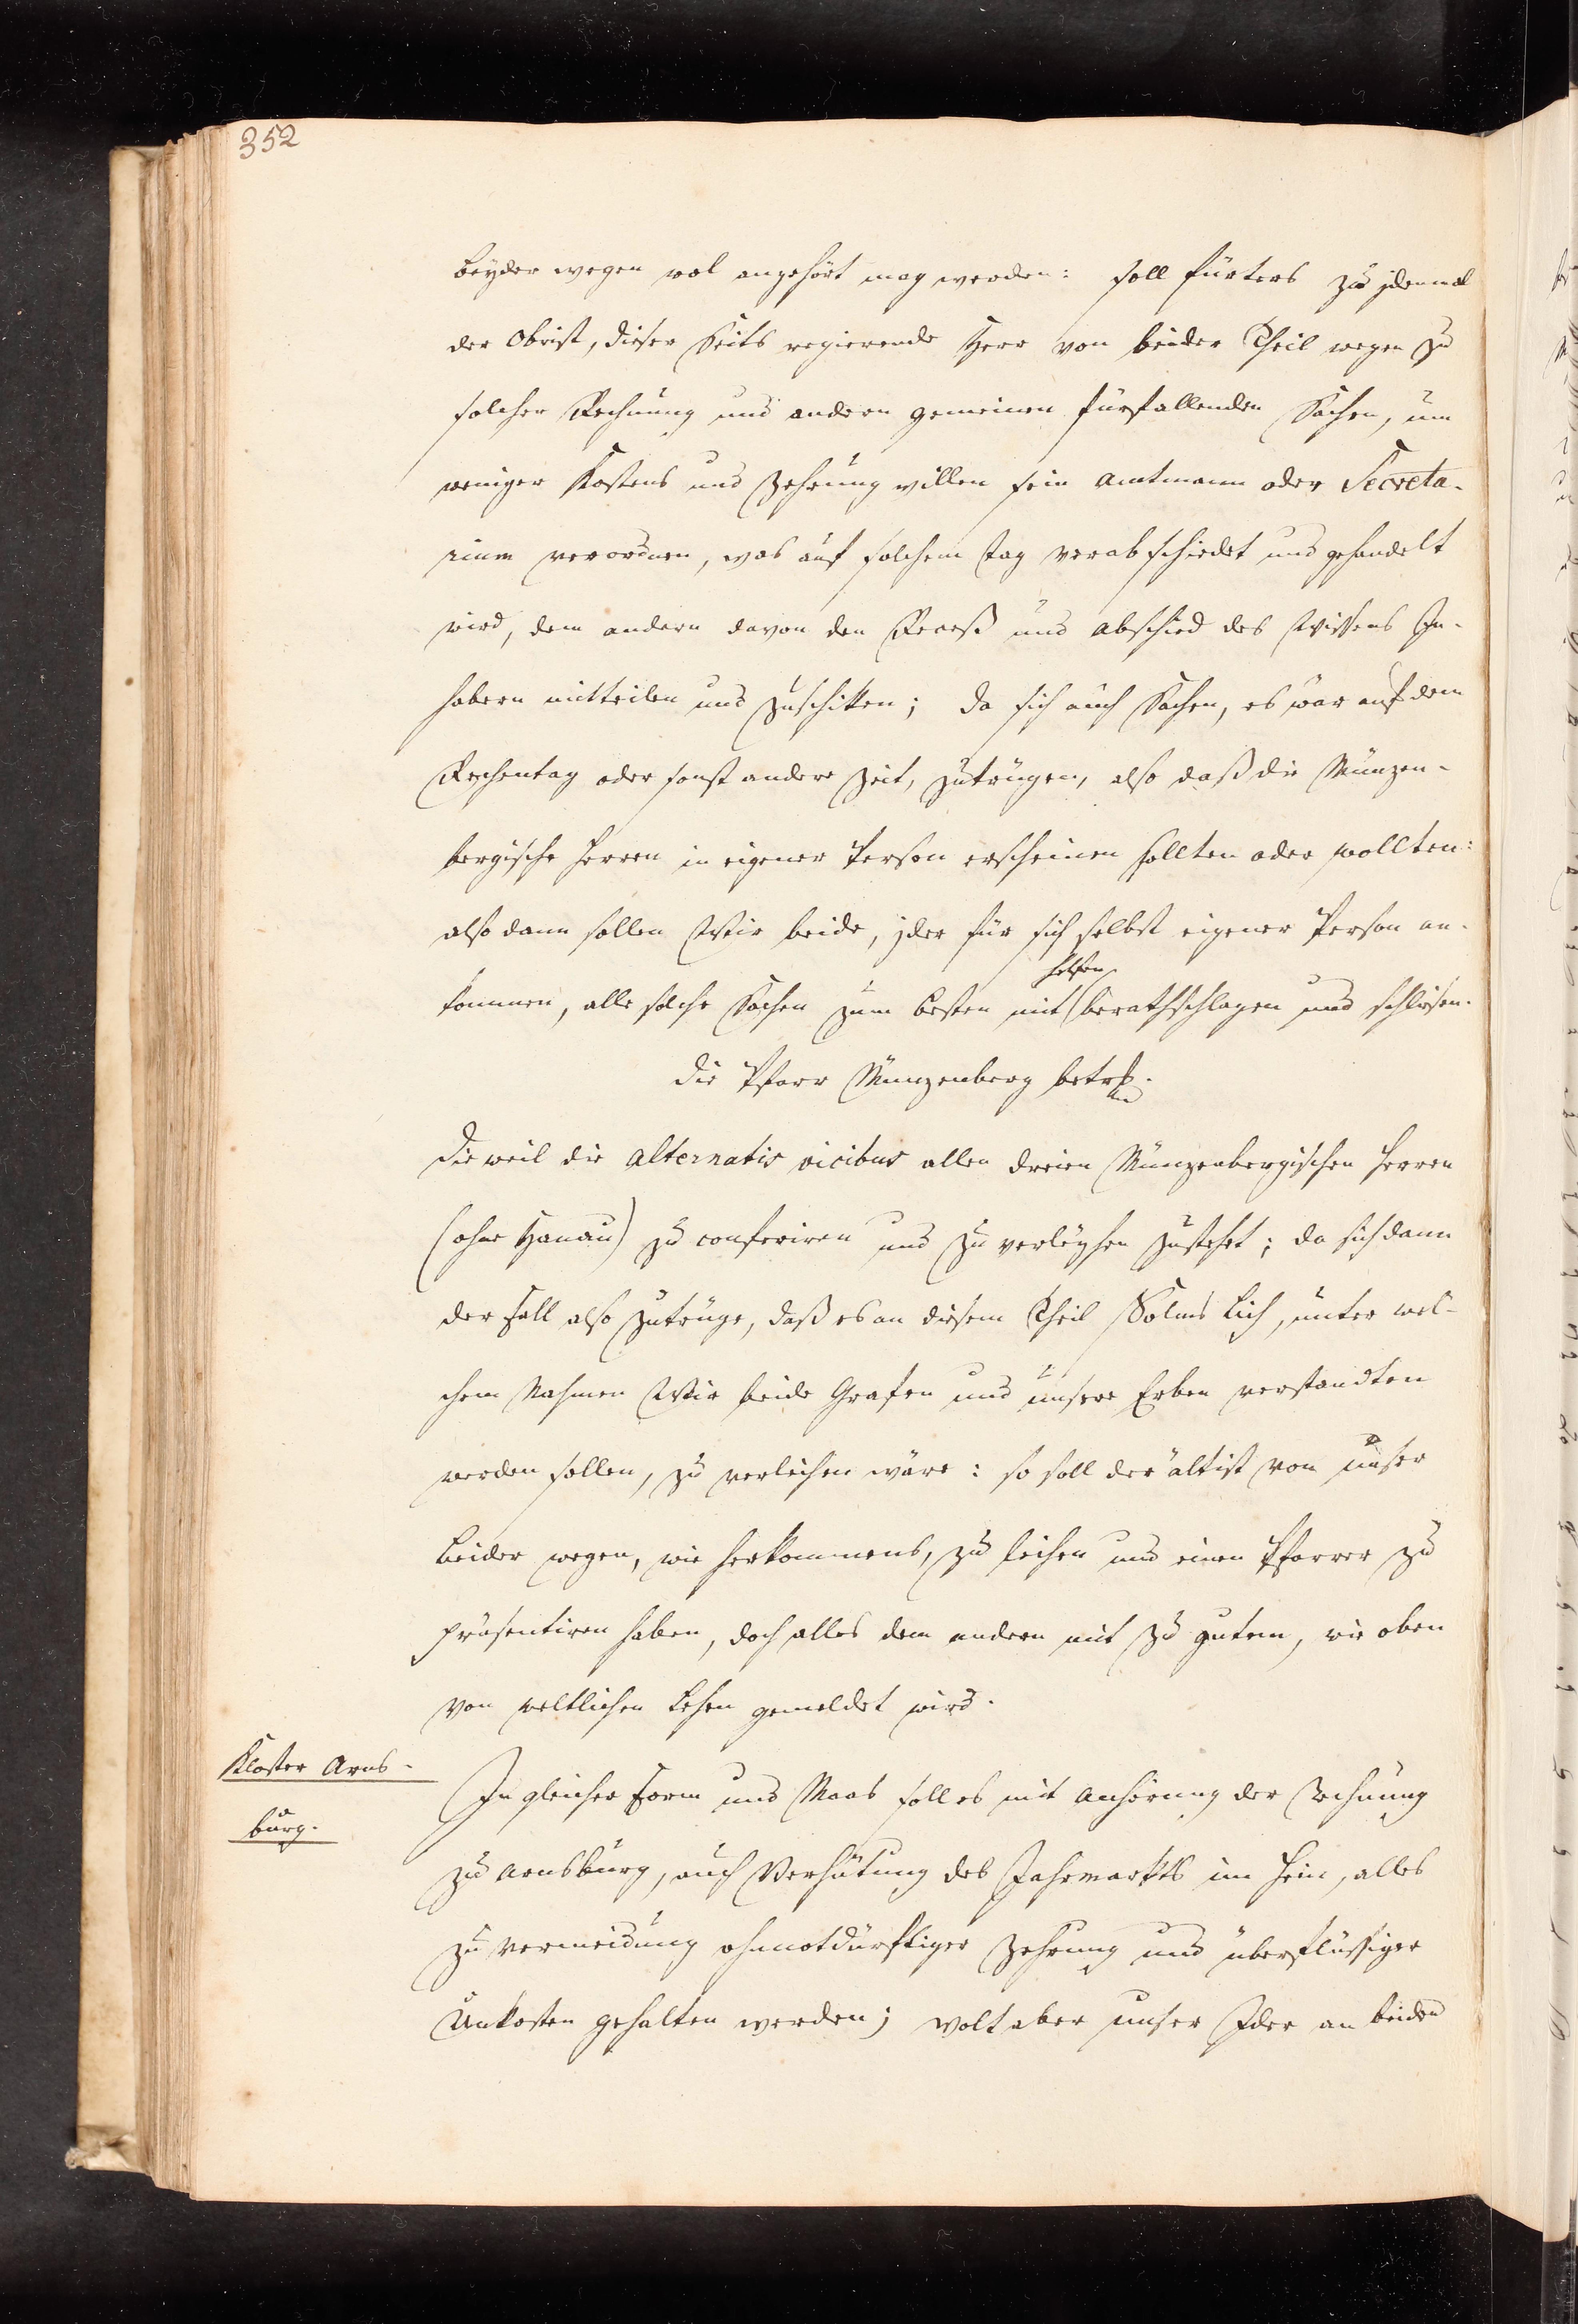 352
beyder wegen wol angehört mag werden: soll fürters zu jdenmal
der Obrist, dieser Seits regierende Herr von beider Theil wegen zu
solcher Rechnung und andern gemeinen fürfallenden Sachen, um
weniger Kostens und Zehrung willen sein Amtmann oder Secreta-
rium verordnen, was auf solchem Tag verabschiedet und gehandelt
wird, dem andern davon den Receß und Abschied des Wissens In-
habern mitteilen und zuschikken; da sich auch Sachen, es wär auf dem
Rechentag oder sonst andere Zeit, zutrügen, also daß die Münzen-
bergische Herren in eigener Person erscheinen sollten oder wollten:
also dann sollen Wir beide, jder für sich selbst eigener Person an-
helfen
kommen, alle solche Sachen zum besten mit berathschlagen und schlisen.
Die Pfarr Münzenberg betr.
Dieweil die alternatis vicibus allen dreien Münzenbergischen Herren
(ohne Hanau) zu conferiren und zu verleyhen zustehet; da sich dann
der Fall also zutrüge, daß es an diesem Theil Solms Lich, unter wel-
chem Nahmen Wir beide Grafen und unsere Erben verstandten
werden sollen, zu verleihen wäre: so soll der ältist von unser
beider wegen, wie herkommens, zu leihen und einen Pfarrer zu
präsentiren haben, doch alles dem andern mit zu gutem, wie oben
von weltlichen Lehen gemeldet wird.
Kloster Arns-
burg.
In gleicher Form und Maas soll es mit Anhörung der Rechnung
zu Arnsburg, auch Verhütung des Jahrmarkts im Hein, alles
zu Vermeidung ohnnotdürftiger Zehrung und überflüssiger
Unkosten gehalten werden; wolt aber unser Jder an beiden